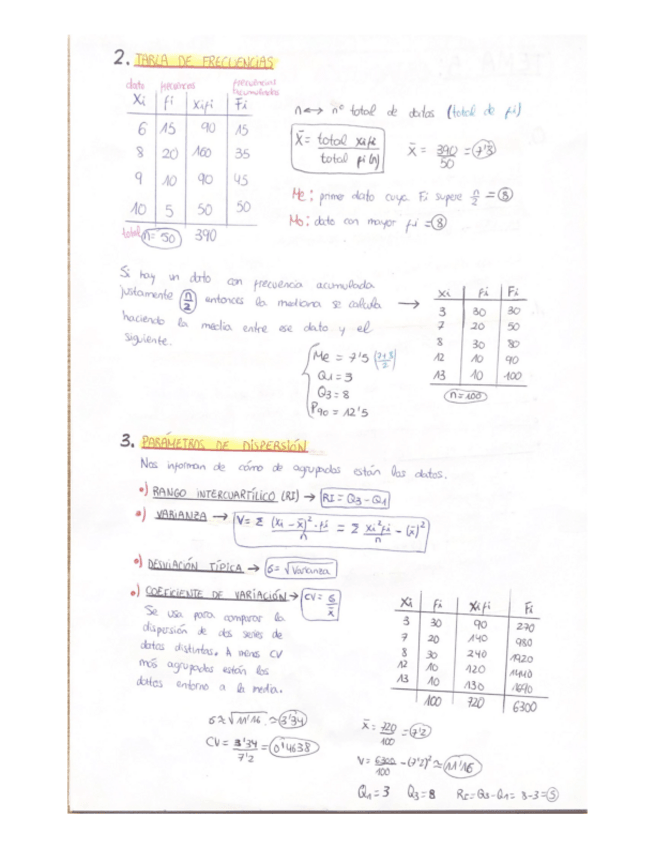 2. TABLA DE FRECUENCIAS
dato frecuencias frecuencias acumuladas
Xi fi Xifi Fi
6 15 90 15
8 20 160 35
9 10 90 45
10 5 50 50
total n= 50 390
n ↔ nº total de datos (total de fi)
X̄ = total xifi / total fi (n)
X̄ = 390/50 = 7'8
Me: primer dato cuya Fi supere n/2 = 8
Mo: dato con mayor fi = 8
Si hay un dato con frecuencia acumulada
justamente n/2 entonces la mediana se calcula →
haciendo la media entre ese dato y el
siguiente.
Xi fi Fi
3 30 30
7 20 50
8 30 80
12 10 90
13 10 100
n=100
Me = 7'5 (7+8/2)
Q1 = 3
Q3 = 8
P90 = 12'5
3. PARÁMETROS DE DISPERSIÓN
Nos informan de cómo de agrupados están los datos.
•) RANGO INTERCUARTÍLICO (RI) → RI = Q3 - Q1
•) VARIANZA → V = Σ (xi - x̄)²·fi / n = Σ xi²fi / n - (x̄)²
•) DESVIACIÓN TÍPICA → σ = √Varianza
•) COEFICIENTE DE VARIACIÓN → CV = σ / x̄
Se usa para comparar la
dispersión de dos series de
datos distintas. A menos CV
más agrupados están los
datos entorno a la media.
Xi fi Xifi Fi
3 30 90 270
7 20 140 980
8 30 240 1920
12 10 120 1440
13 10 130 1690
100 720 6300
σ ≈ √11'16 ≈ 3'34
CV = 3'34 / 7'2 = 0'4638
X̄ = 720/100 = 7'2
V = 6300/100 - (7'2)² ≈ 11'16
Q1 = 3 Q3 = 8 RI = Q3 - Q1 = 8 - 3 = 5